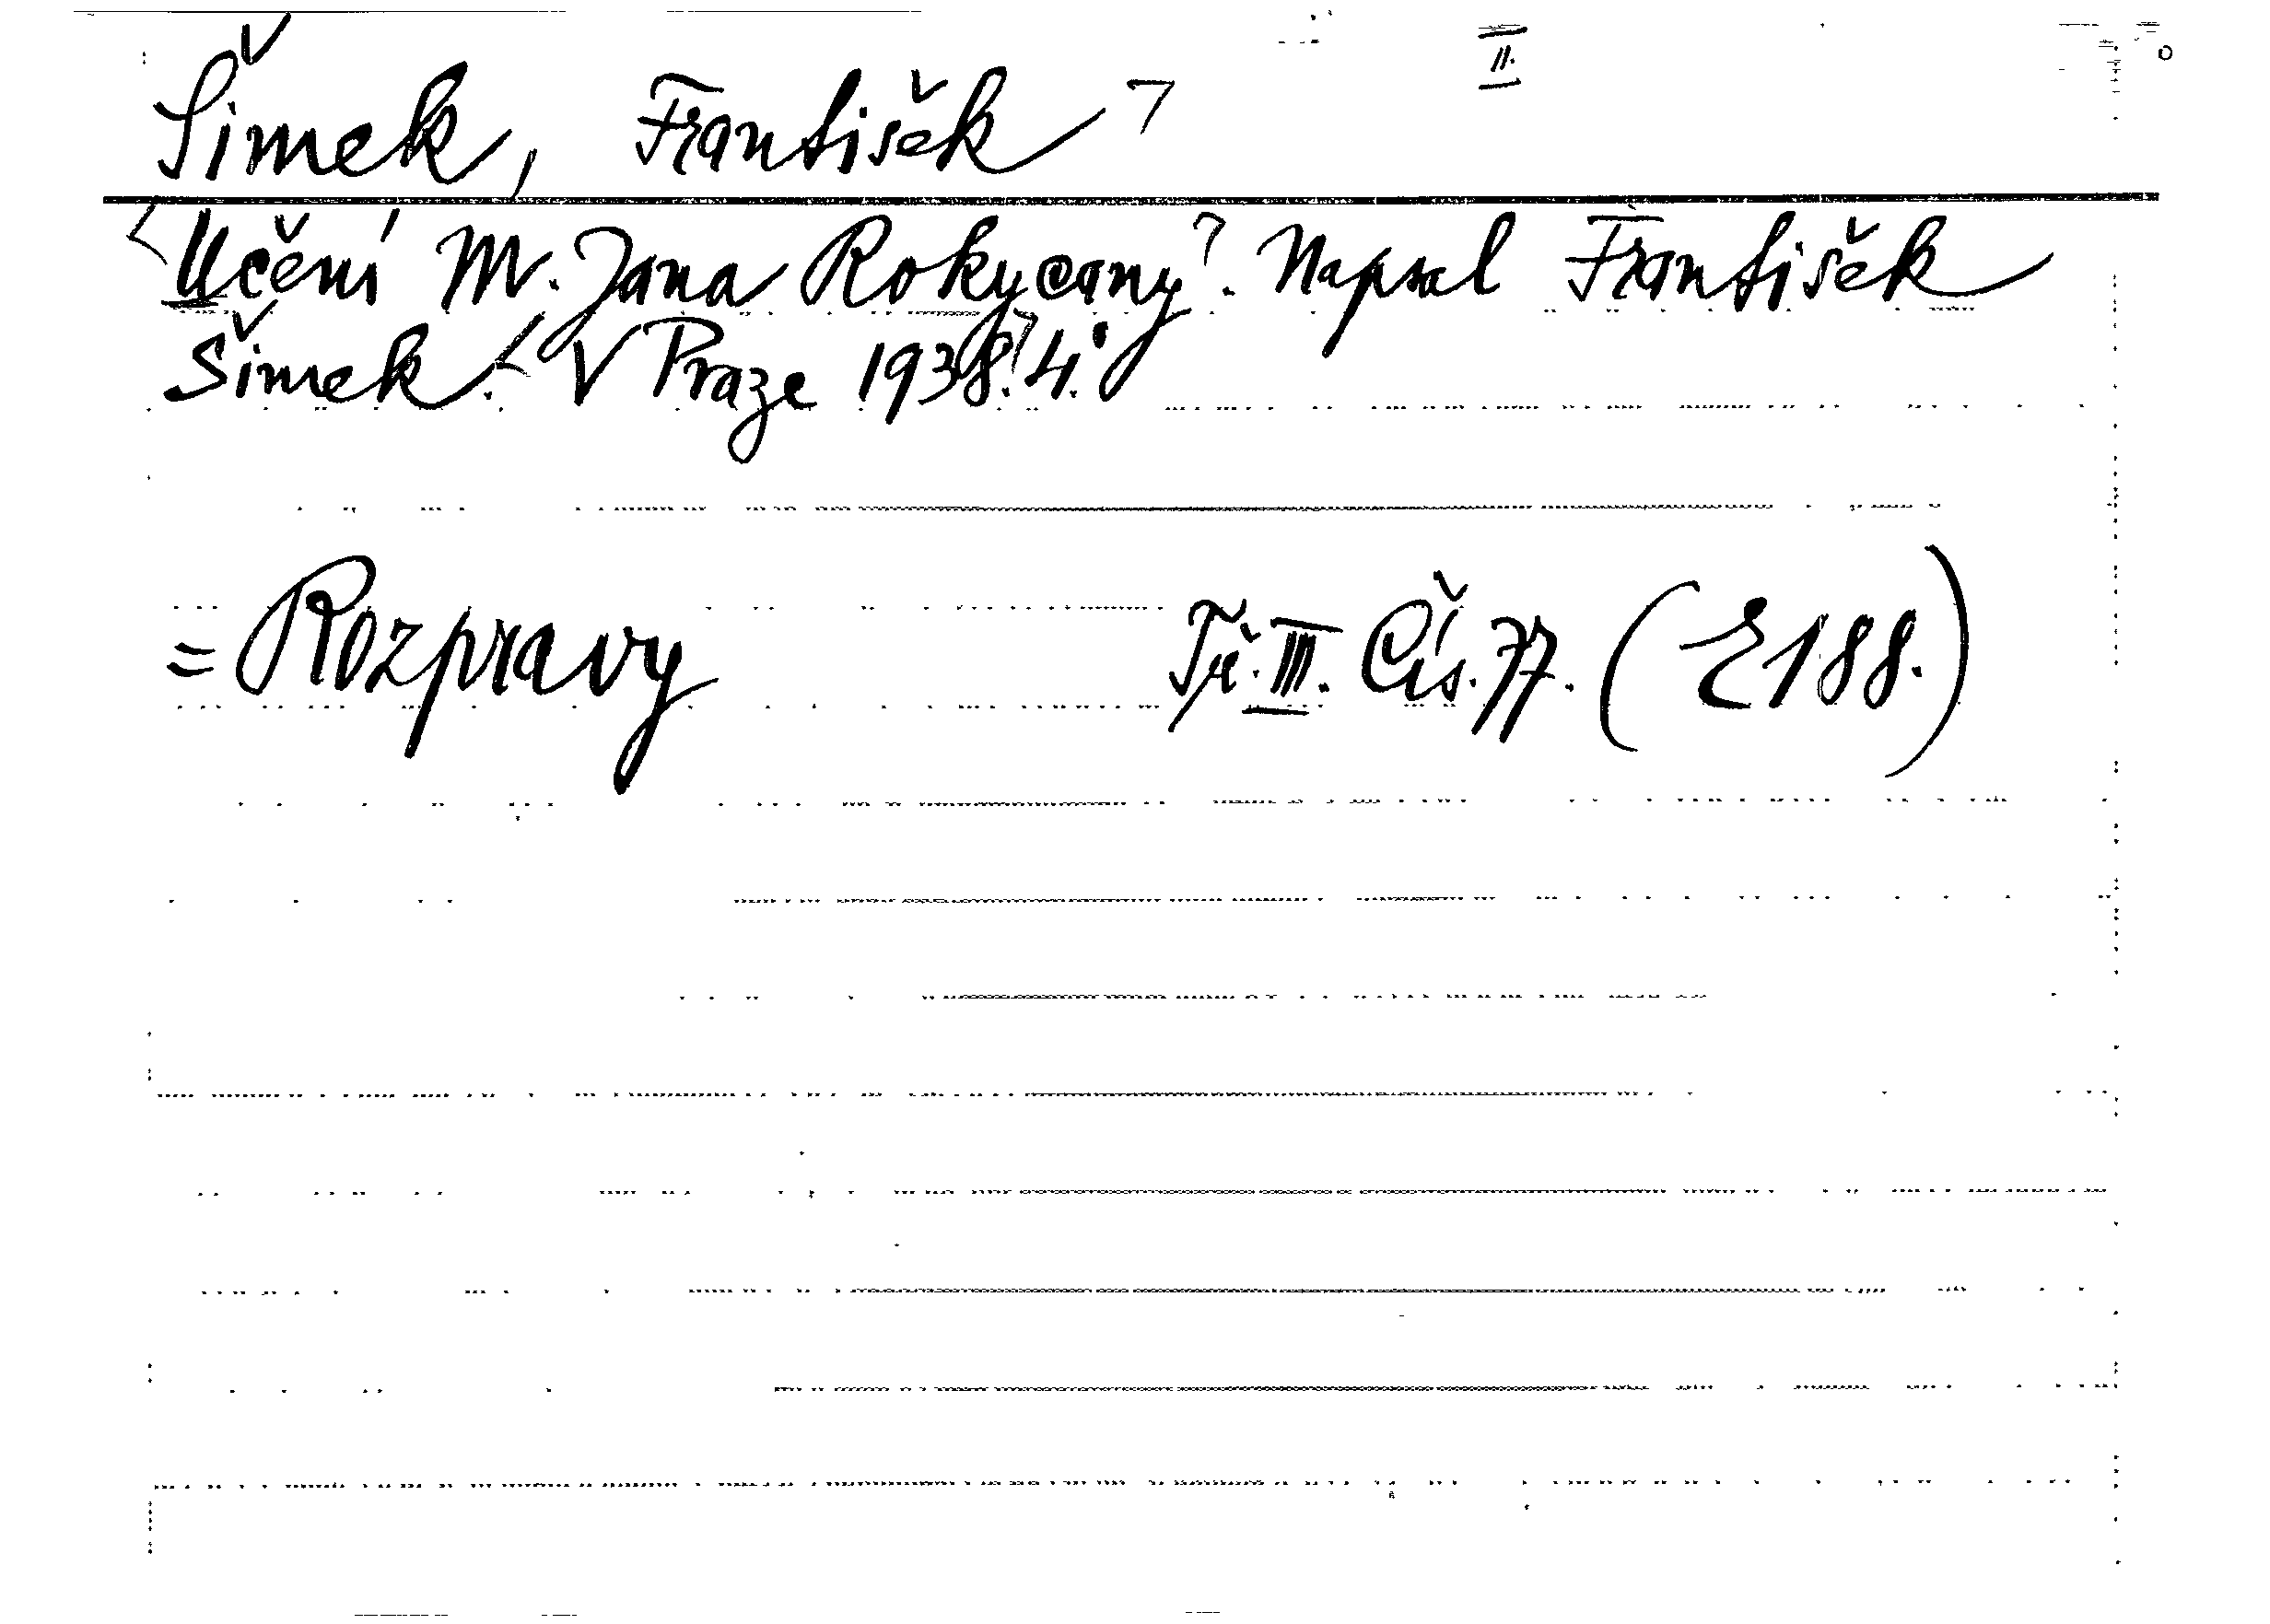 II.
Šimek, František
Učení M. Jana Rokycany. Napsal František
Šimek. V Praze 1938. 4.°
= Rozpravy Tř. III. Čís. 77. (E 188.)